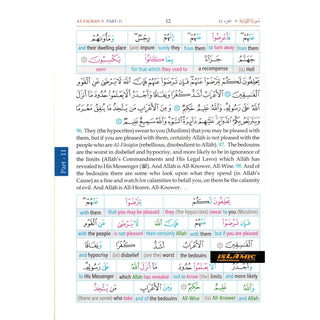 AT-TAUBAH 9 PART-11 12 الجزء ١١ سُورَةُ التَّوْبَة ٩
عَنْهُمْ فَأَعْرِضُوا عَنْهُمْ إِنَّهُمْ رِجْسٌ وَمَأْوَاهُمْ
and their dwelling place (are) impure surely they from them so turn away from them
earn for that which they used to a recompense (is) Hell
يَحْلِفُونَ لَكُمْ لِتَرْضَوْا عَنْهُمْ فَإِن تَرْضَوْا عَنْهُمْ فَإِنَّ اللَّهَ لَا يَرْضَىٰ عَنِ الْقَوْمِ
الْفَاسِقِينَ الْأَعْرَابُ أَشَدُّ كُفْرًا وَنِفَاقًا وَأَجْدَرُ أَلَّا يَعْلَمُوا حُدُودَ مَا أَنزَلَ اللَّهُ
عَلَىٰ رَسُولِهِ وَاللَّهُ عَلِيمٌ حَكِيمٌ وَمِنَ الْأَعْرَابِ مَن يَتَّخِذُ مَا يُنفِقُ مَغْرَمًا
96. They (the hypocrites) swear to you (Muslims) that you may be pleased with
them, but if you are pleased with them, certainly Allah is not pleased with the
people who are Al-Fâsiqûn (rebellious, disobedient to Allah). 97. The bedouins
are the worst in disbelief and hypocrisy, and more likely to be in ignorance of
the limits (Allah's Commandments and His Legal Laws) which Allah has
revealed to His Messenger (ﷺ). And Allah is All-Knower, All-Wise. 98. And of
the bedouins there are some who look upon what they spend (in Allah's
Cause) as a fine and watch for calamities to befall you, on them be the calamity
of evil. And Allah is All-Hearer, All-Knower.
Part - 11
يَحْلِفُونَ لَكُمْ لِتَرْضَوْا عَنْهُمْ
with them that you may be pleased they (the hypocrites) swear to you (Muslims)
with the people is not pleased then certainly Allah with them but if you are pleased
الْفَاسِقِينَ الْأَعْرَابُ أَشَدُّ كُفْرًا وَنِفَاقًا
and hypocrisy (in) disbelief (are the) worst the bedouins
ISLAMIC
to His Messenger which Allah has revealed not to know (the) limits and more likely
(there are some) who take and of the bedouins All-Wise (is) All-Knower and Allah